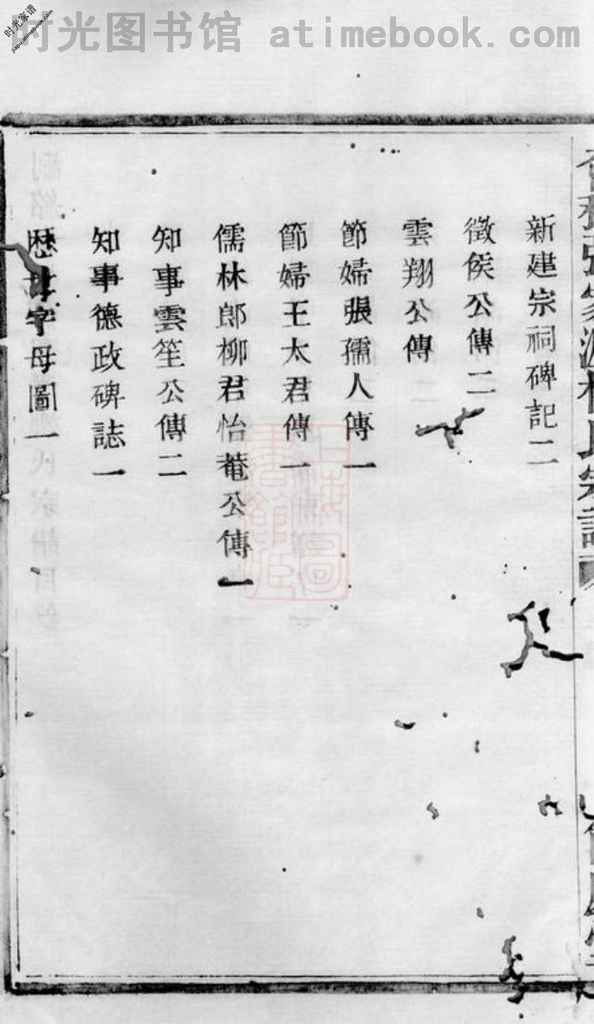 时光图书馆 atimebook.com
新建宗祠碑記二
徵侯公傳二
雲翔公傳
節婦張孺人傳一
節婦王太君傳一
儒林郎柳君怡菴公傳一
知事雲笙公傳二
知事德政碑誌一
字母圖一